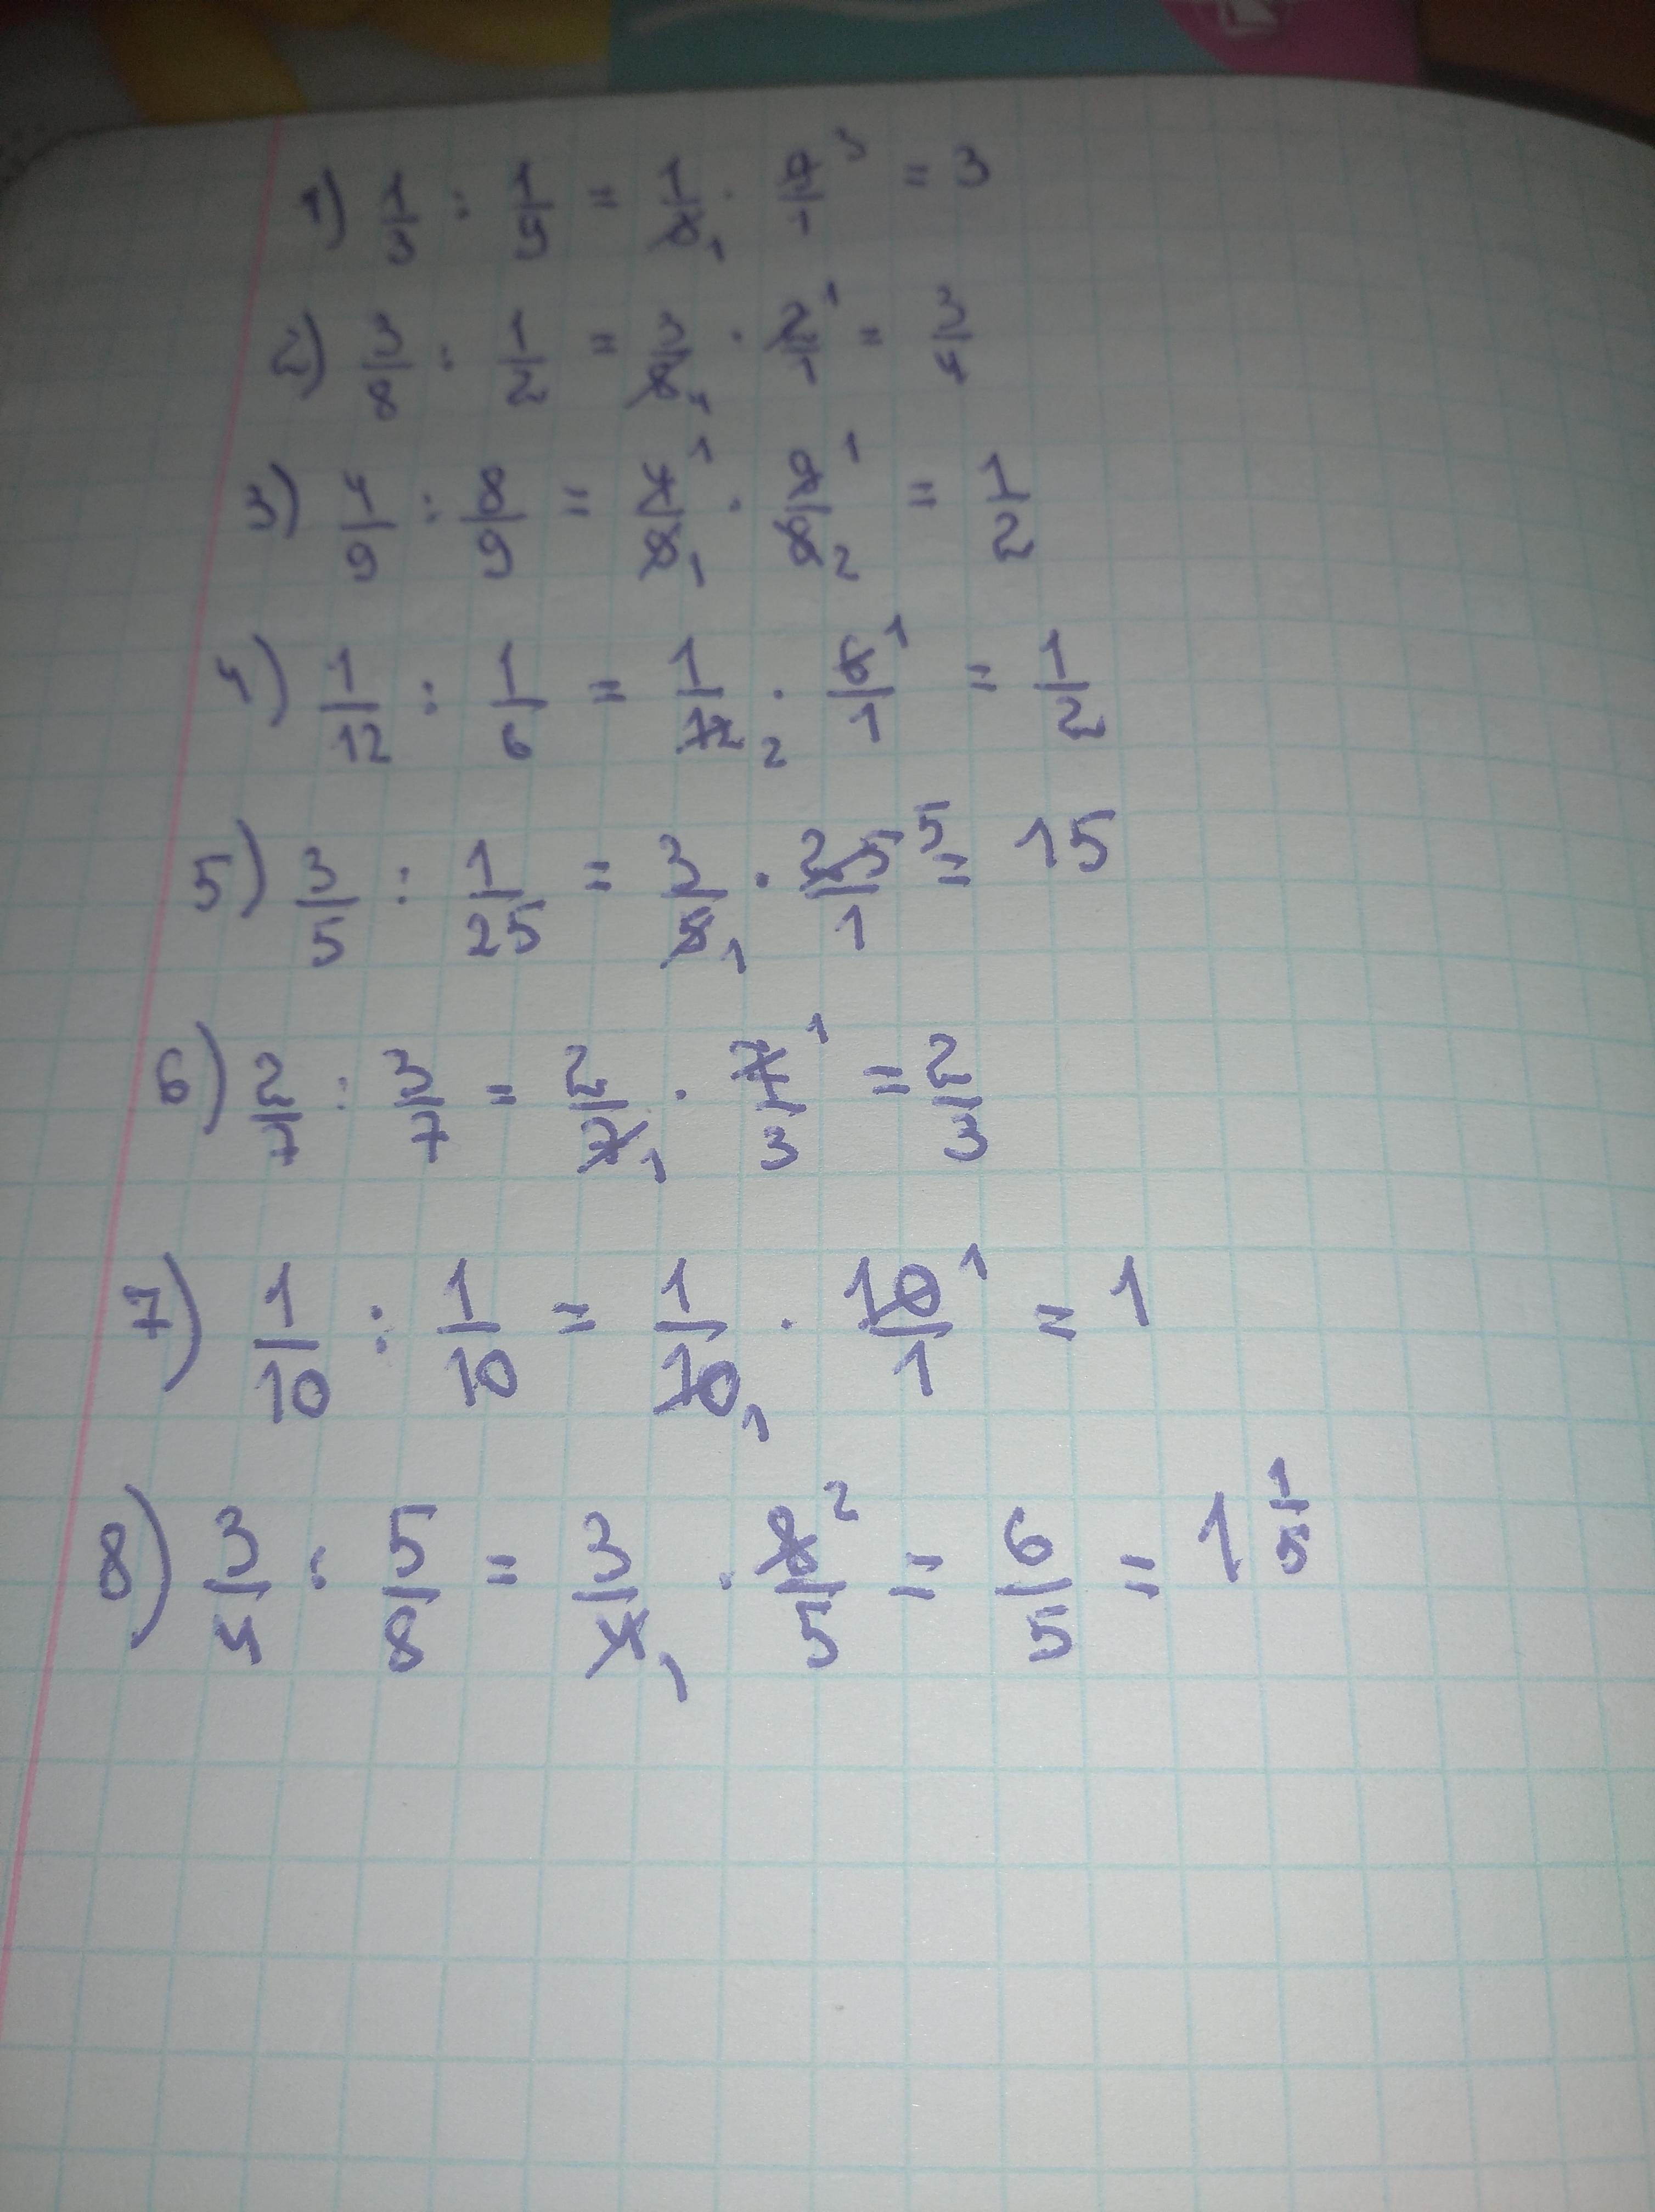 1) 1/3 : 1/9 = 1/3 1 · 9/1 3 = 3
2) 3/8 : 1/2 = 3/8 4 · 2/1 1 = 3/4
3) 4/9 : 8/9 = 4/9 1 1 · 9/8 1 2 = 1/2
4) 1/12 : 1/6 = 1/12 2 · 6/1 1 = 1/2
5) 3/5 : 1/25 = 3/5 1 · 25/1 5 = 15
6) 2/7 : 3/7 = 2/7 1 · 7/3 1 = 2/3
7) 1/10 : 1/10 = 1/10 1 · 10/1 1 = 1
8) 3/4 : 5/8 = 3/4 1 · 8/5 2 = 6/5 = 1 1/5